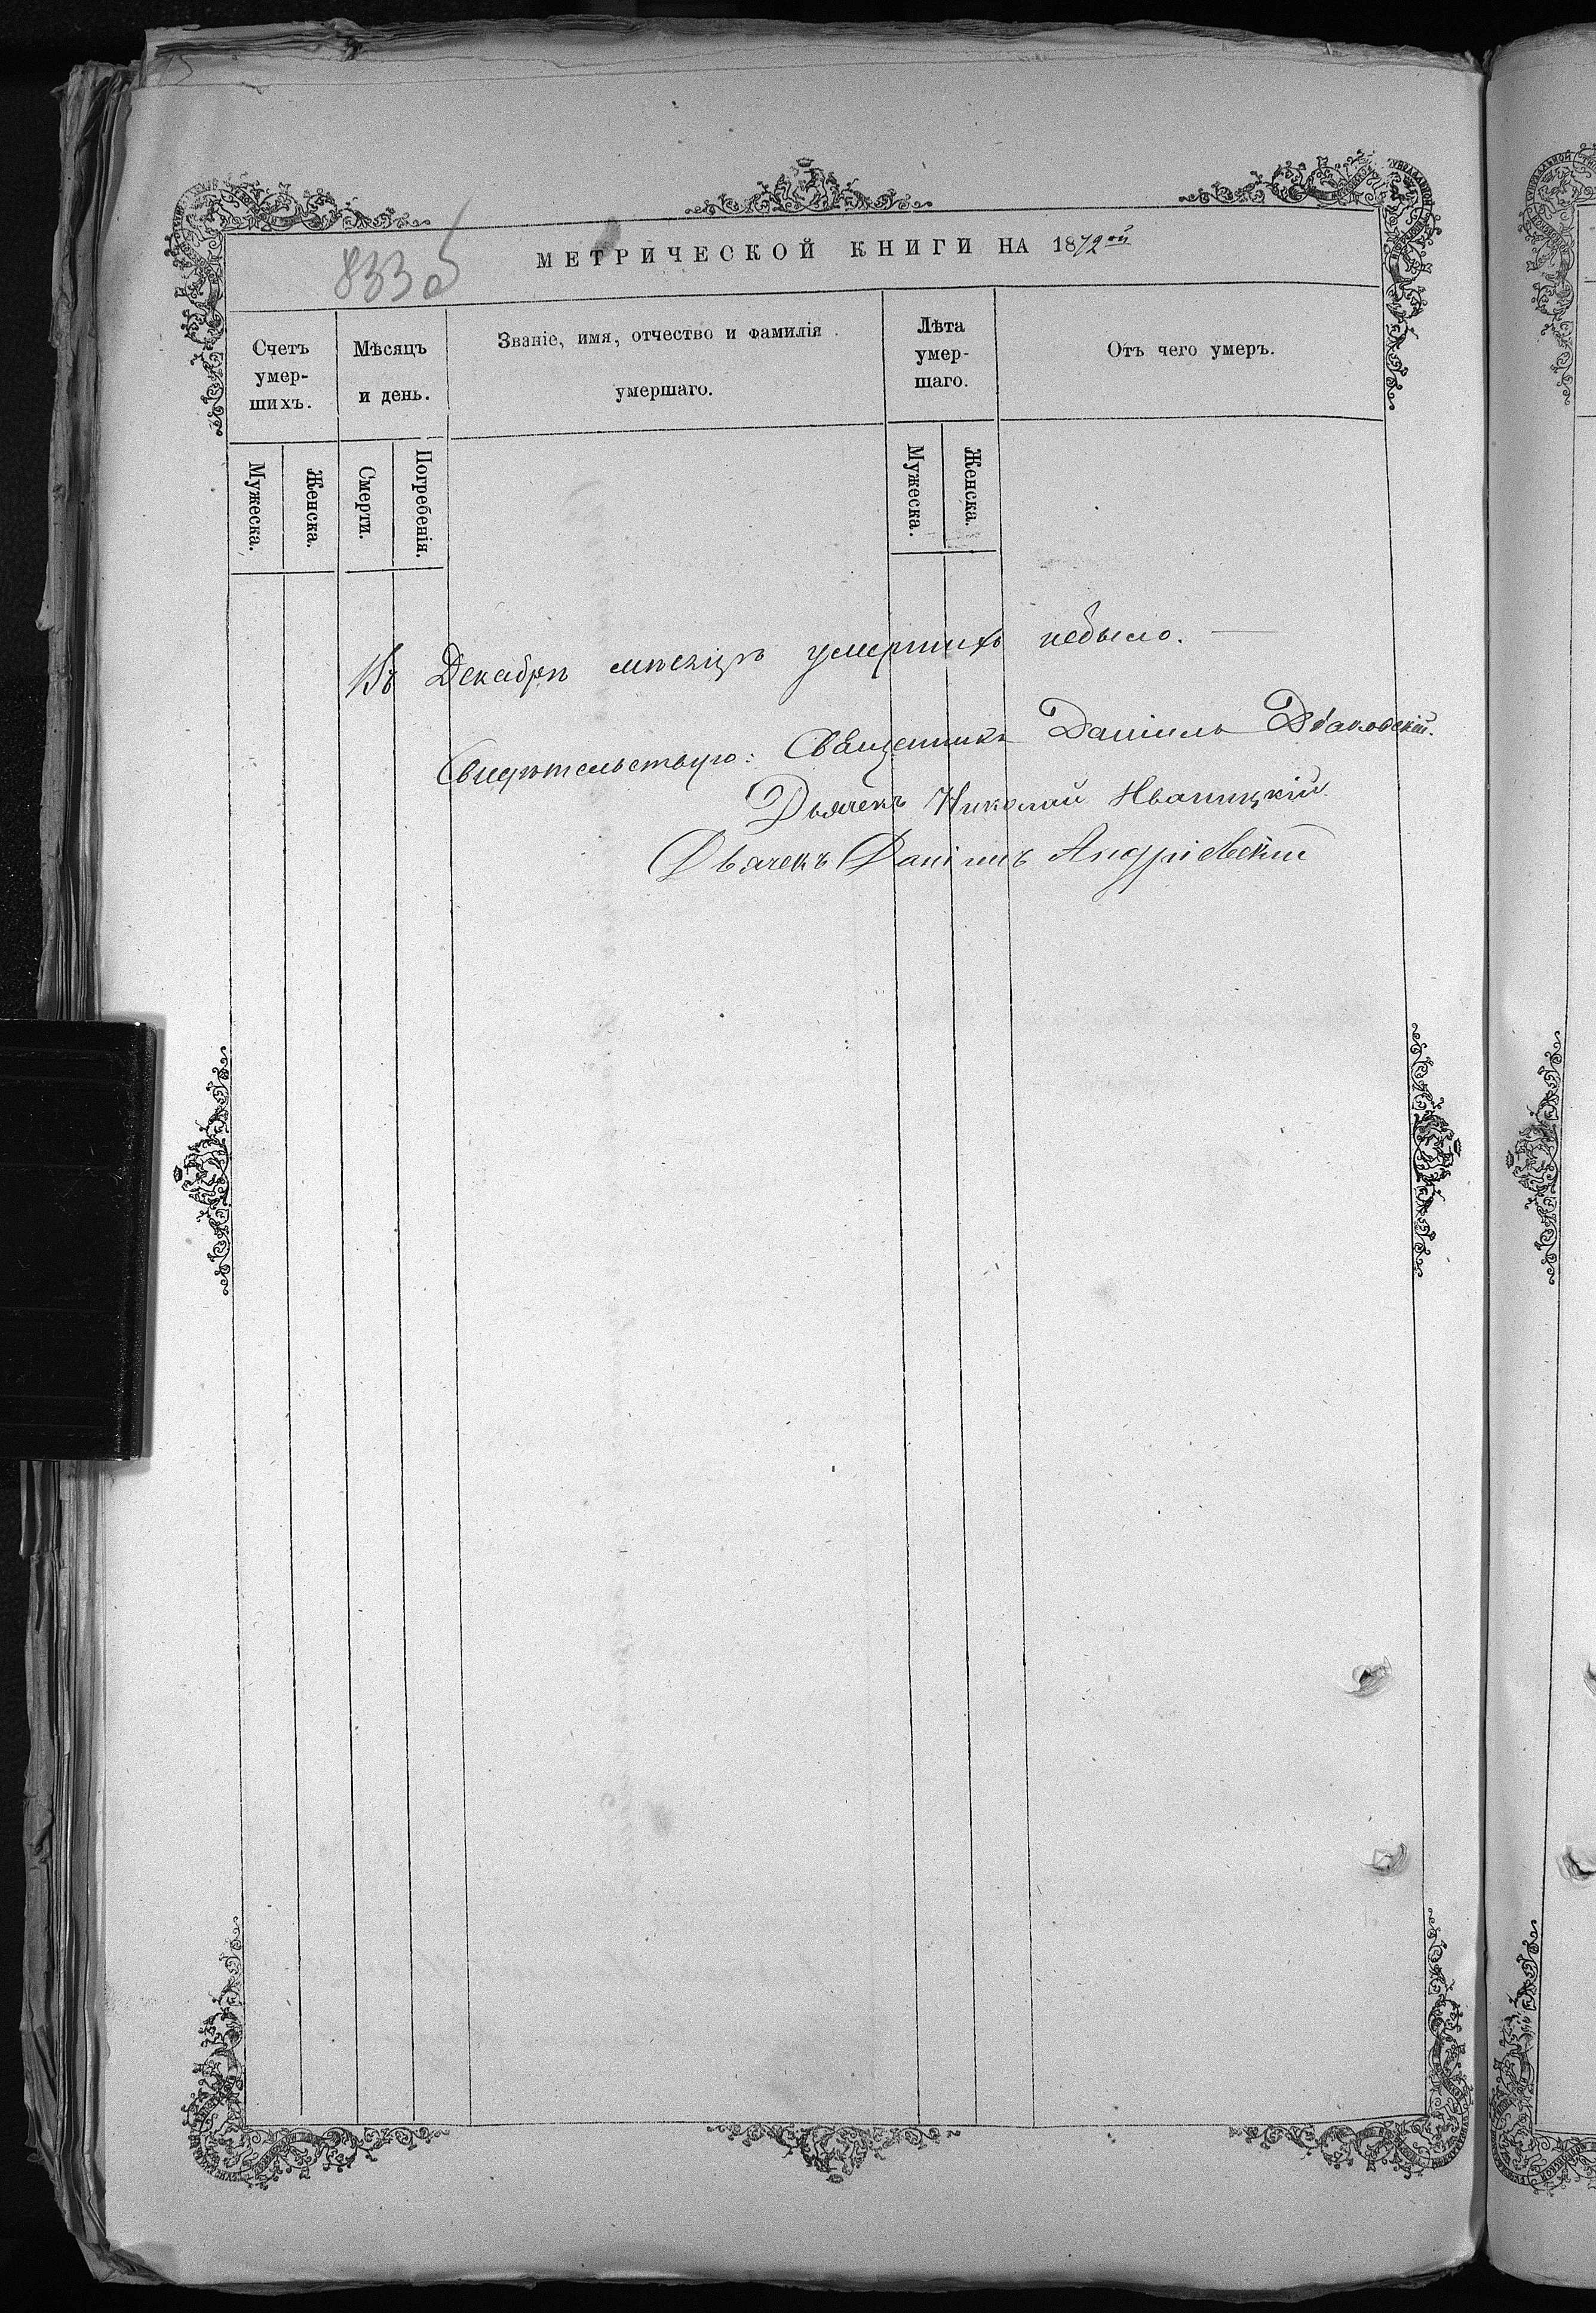 833 об
МЕТРИЧЕСКОЙ КНИГИ НА 1872ой
Счетъ умер- шихъ.
Мѣсяцъ и день.
Званіе, имя, отчество и фамилія умершаго.
Лѣта умер- шаго.
Отъ чего умеръ.
Мужеска.
Женска.
Смерти.
Погребенія.
Мужеска.
Женска.
Въ Декабрѣ мѣсяцѣ умершихъ небыло. —
Свидѣтельствую: Священникъ Даніилъ
Дьячекъ Николай Иваницкій
Дьячекъ Даніилъ Андріевскій